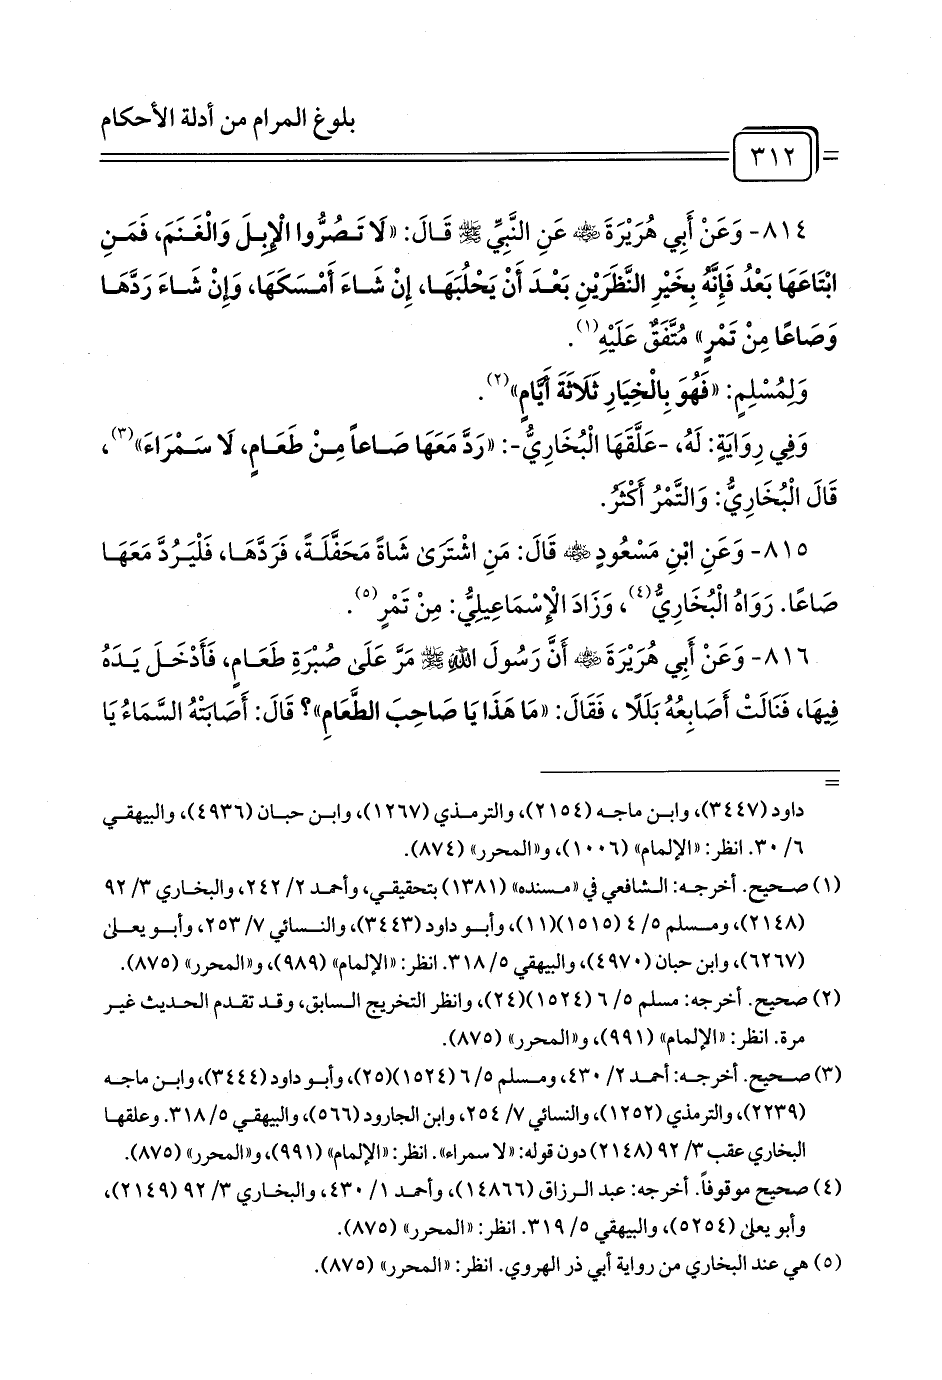 بلوغ المرام من أدلة الأحكام
= ٣١٢
٨١٤- وَعَنْ أَبِي هُرَيْرَةَ رضي الله عنه عَنِ النَّبِيِّ ﷺ قَالَ: «لَا تَصُرُّوا الْإِبِلَ وَالْغَنَمَ، فَمَنِ
ابْتَاعَهَا بَعْدُ فَإِنَّهُ بِخَيْرِ النَّظَرَيْنِ بَعْدَ أَنْ يَحْلُبَهَا، إِنْ شَاءَ أَمْسَكَهَا، وَإِنْ شَاءَ رَدَّهَا
وَصَاعًا مِنْ تَمْرٍ» مُتَّفَقٌ عَلَيْهِ(١).
وَلِمُسْلِمٍ: «فَهُوَ بِالْخِيَارِ ثَلَاثَةَ أَيَّامٍ»(٢).
وَفِي رِوَايَةٍ: لَهُ، -عَلَّقَهَا الْبُخَارِيُّ-: «رَدَّ مَعَهَا صَاعاً مِنْ طَعَامٍ، لَا سَمْرَاءَ»(٣)،
قَالَ الْبُخَارِيُّ: وَالتَّمْرُ أَكْثَرُ.
٨١٥- وَعَنِ ابْنِ مَسْعُودٍ رضي الله عنه قَالَ: مَنِ اشْتَرَى شَاةً مَحَفَّلَةً، فَرَدَّهَا، فَلْيَرُدَّ مَعَهَا
صَاعًا. رَوَاهُ الْبُخَارِيُّ(٤)، وَزَادَ الْإِسْمَاعِيلِيُّ: مِنْ تَمْرٍ(٥).
٨١٦- وَعَنْ أَبِي هُرَيْرَةَ رضي الله عنه أَنَّ رَسُولَ اللهِ ﷺ مَرَّ عَلَى صُبْرَةِ طَعَامٍ، فَأَدْخَلَ يَدَهُ
فِيهَا، فَنَالَتْ أَصَابِعُهُ بَلَلًا ، فَقَالَ: «مَا هَذَا يَا صَاحِبَ الطَّعَامِ»؟ قَالَ: أَصَابَتْهُ السَّمَاءُ يَا
=
داود (٣٤٤٧)، وابن ماجه (٢١٥٤)، والترمذي (١٢٦٧)، وابن حبان (٤٩٣٦)، والبيهقي
٦/ ٣٠. انظر: «الإلمام» (١٠٠٦)، و«المحرر» (٨٧٤).
(١) صحيح. أخرجه: الشافعي في «مسنده» (١٣٨١) بتحقيقي، وأحمد ٢/ ٢٤٢، والبخاري ٣/ ٩٢
(٢١٤٨)، ومسلم ٥/ ٤ (١٥١٥)(١١)، وأبو داود (٣٤٤٣)، والنسائي ٧/ ٢٥٣، وأبو يعلى
(٦٢٦٧)، وابن حبان (٤٩٧٠)، والبيهقي ٥/ ٣١٨. انظر: «الإلمام» (٩٨٩)، و«المحرر» (٨٧٥).
(٢) صحيح. أخرجه: مسلم ٥/ ٦ (١٥٢٤)(٢٤)، وانظر التخريج السابق، وقد تقدم الحديث غير
مرة. انظر: «الإلمام» (٩٩١)، و«المحرر» (٨٧٥).
(٣) صحيح. أخرجه: أحمد ٢/ ٤٣٠، ومسلم ٥/ ٦ (١٥٢٤)(٢٥)، وأبو داود (٣٤٤٤)، وابن ماجه
(٢٢٣٩)، والترمذي (١٢٥٢)، والنسائي ٧/ ٢٥٤، وابن الجارود (٥٦٦)، والبيهقي ٥/ ٣١٨. وعلقها
البخاري عقب ٣/ ٩٢ (٢١٤٨) دون قوله: «لا سمراء». انظر: «الإلمام» (٩٩١)، و«المحرر» (٨٧٥).
(٤) صحيح موقوفاً. أخرجه: عبد الرزاق (١٤٨٦٦)، وأحمد ١/ ٤٣٠، والبخاري ٣/ ٩٢ (٢١٤٩)،
وأبو يعلى (٥٢٥٤)، والبيهقي ٥/ ٣١٩. انظر: «المحرر» (٨٧٥).
(٥) هي عند البخاري من رواية أبي ذر الهروي. انظر: «المحرر» (٨٧٥).